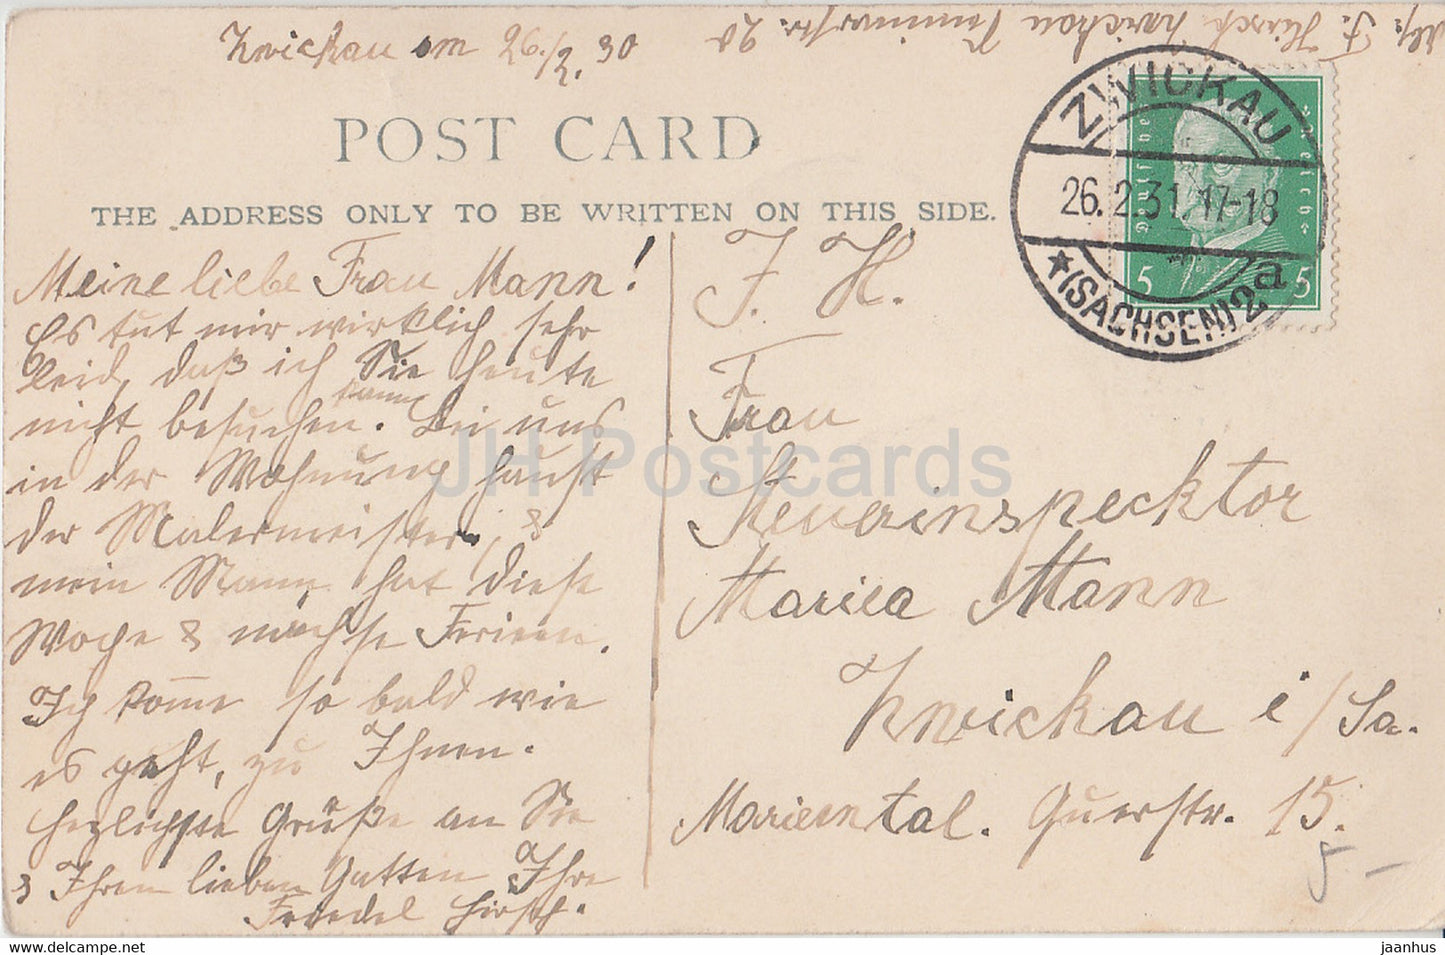 Zwickau am 26./2. 30
Abs: F. Hirsch Zwickau str. 20
POST CARD
THE ADDRESS ONLY TO BE WRITTEN ON THIS SIDE.
ZWICKAU
26.2.31.17-18
*(SACHSEN)2 a
Deutsches Reich
5 5
Meine liebe Frau Mann!
Es tut mir wirklich sehr
leid, daß ich Sie heute
kann
nicht besuchen. Bei uns
in der Wohnung haust
der Malermeister, &
mein Mann hat diese
Woche & nächste Ferien.
Ich komme so bald wie
es geht, zu Ihnen.
Herzlichste Grüße an Sie
& Ihren lieben Gatten Ihre
Friedel Hirsch.
F. H.
Frau
Steuerinspecktor
Mariea Mann
Zwickau i/Sa.
Mariental. Querstr. 15.
5 -
JH Postcards
hippostcard.com
jaanhus